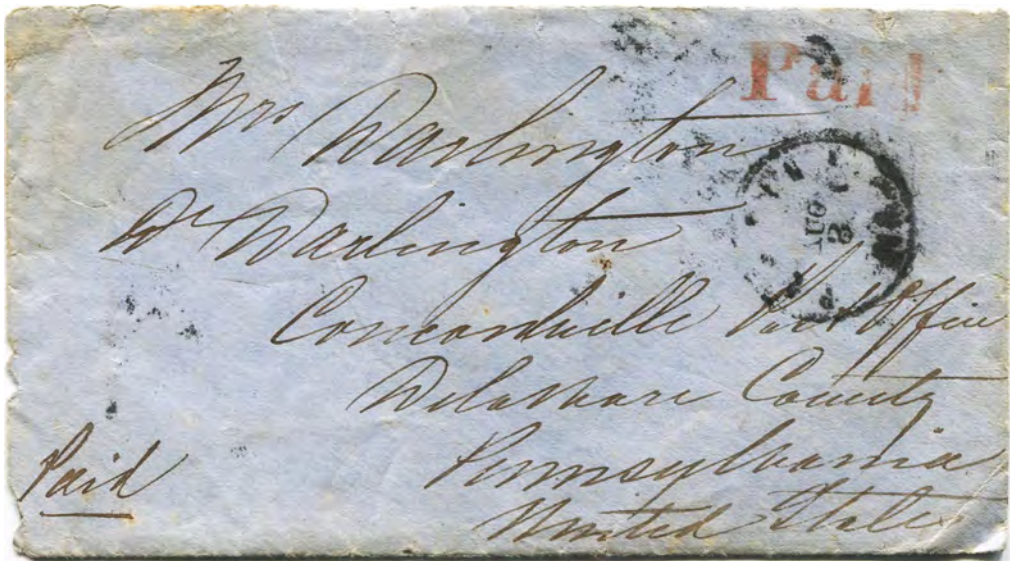 Paid
Mrs Darlington
Dr Darlington
Concordville Post Office
Delaware County
Pennsylvania
United States
Paid
AUG